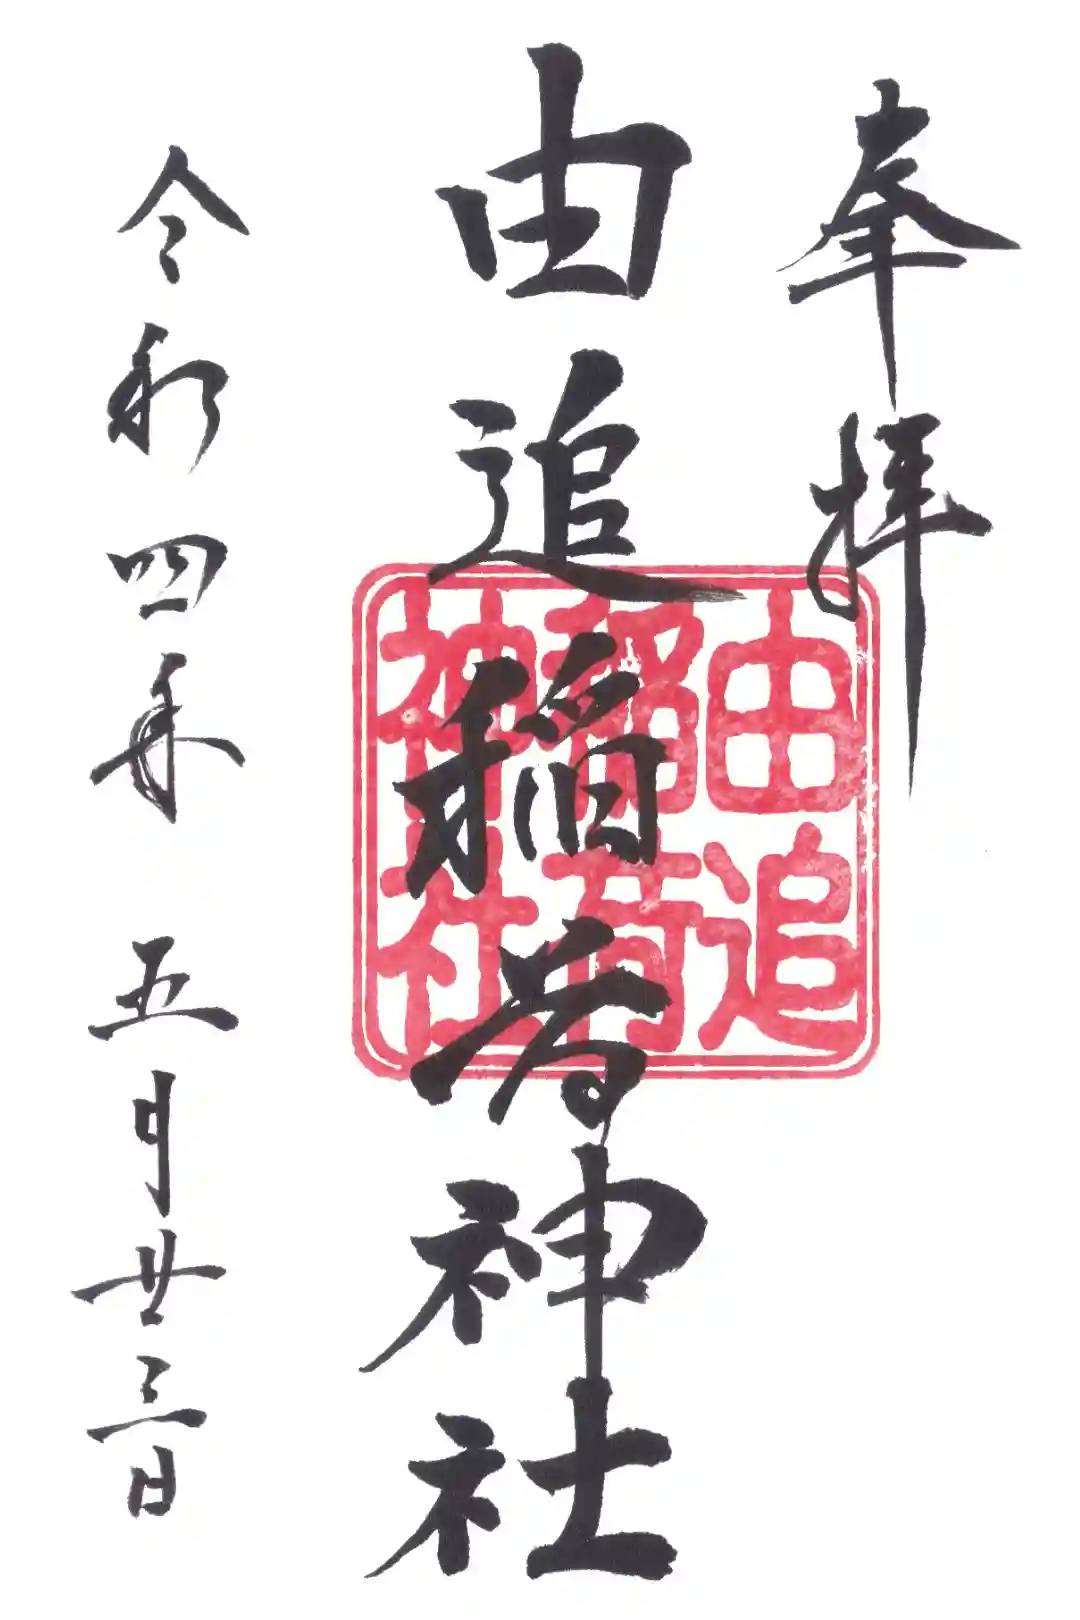 奉拝
由追稲荷神社
由追
稲荷
神社
令和四年 五月廿三日